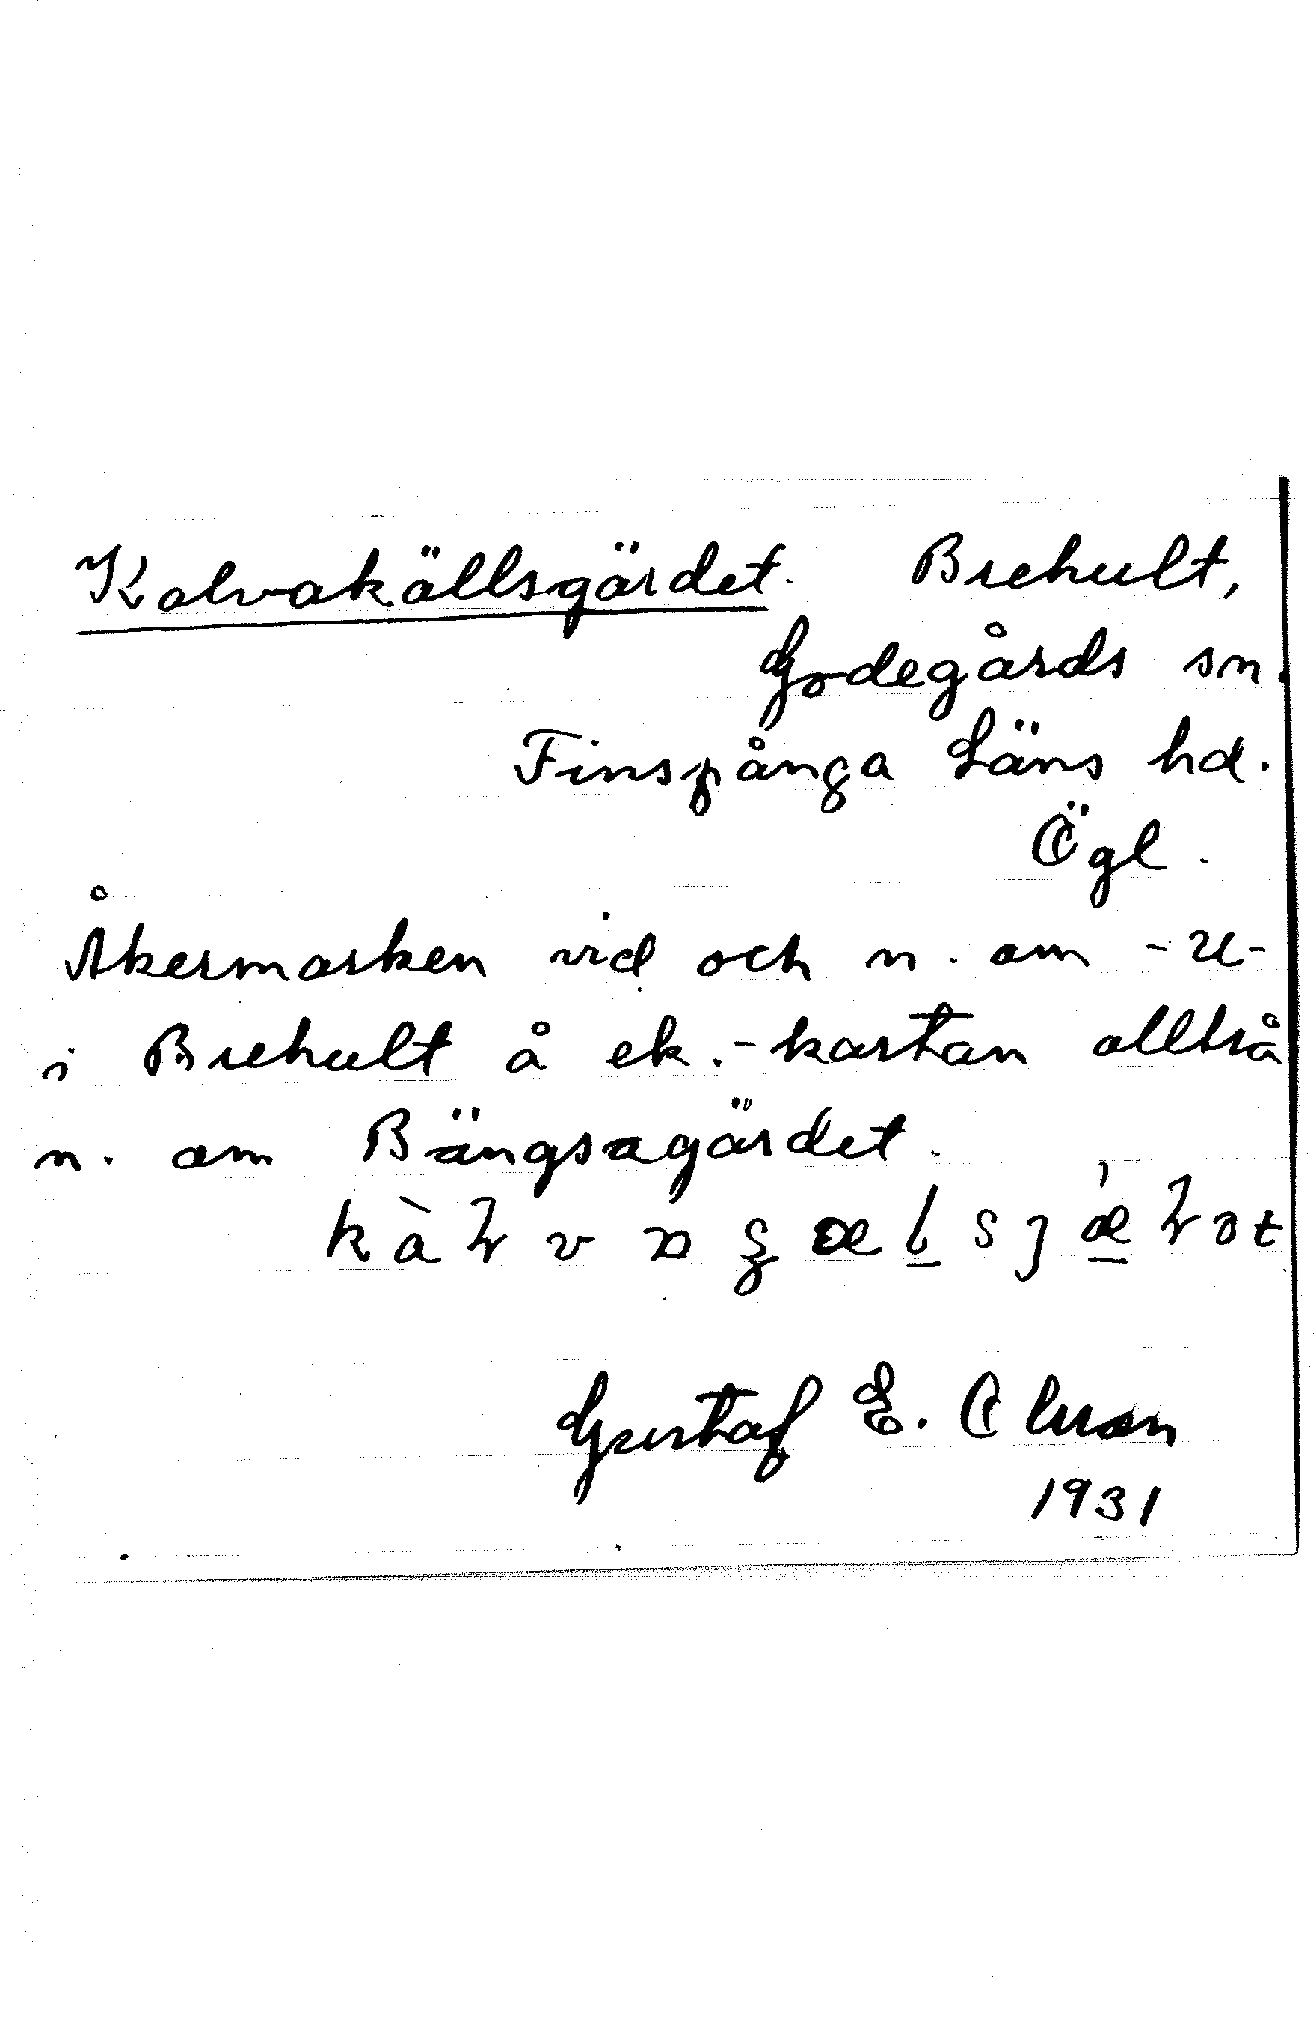 Kalvakällsgärdet. Brehult,
Godegårds sn.
Finspånga Läns hd.
Ögl.
Åkermarken vid och n. om -u-
i Brehult å ek.-kartan alltså
n. om Bängsagärdet.
Gustaf E.
1931